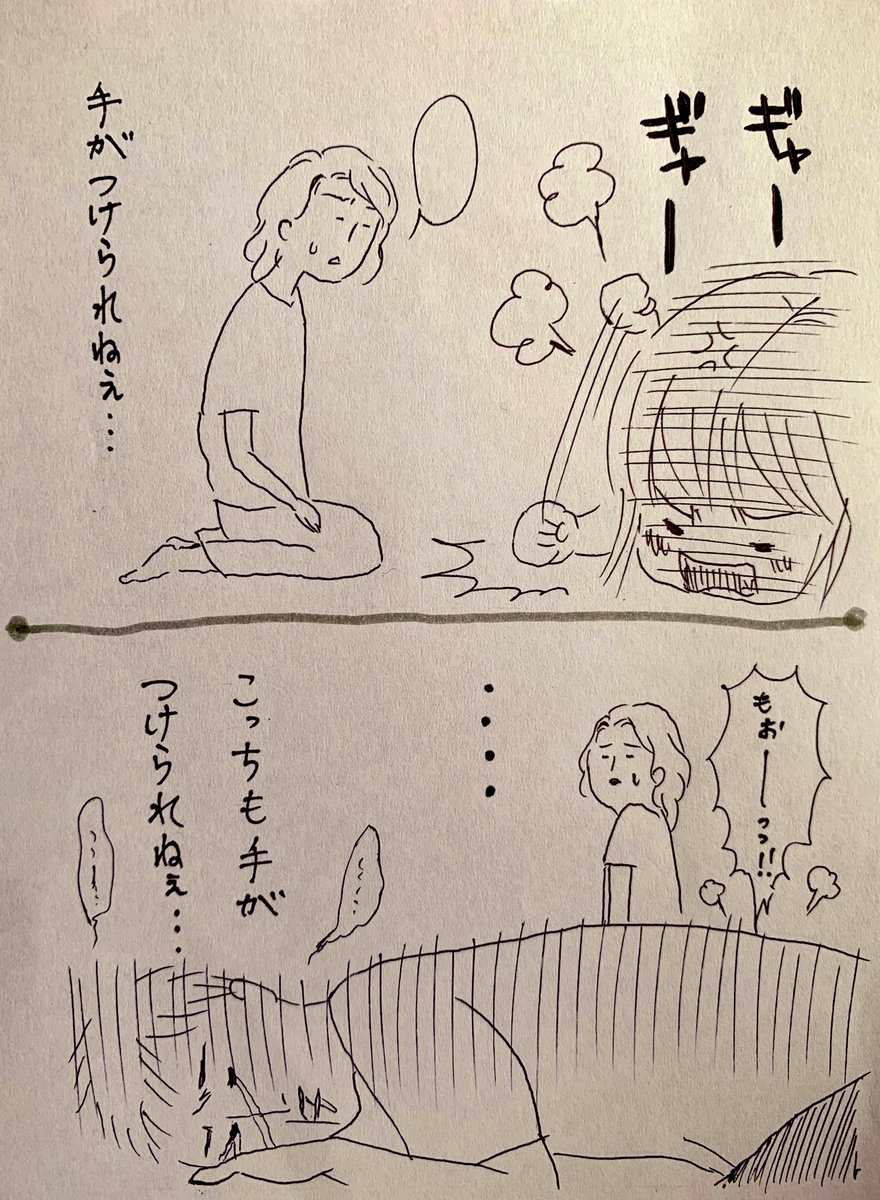 ギャー
ギャー
手がつけられねぇ…
もおーーっっ!!
・・・・
こっちも手が
つけられねぇ…